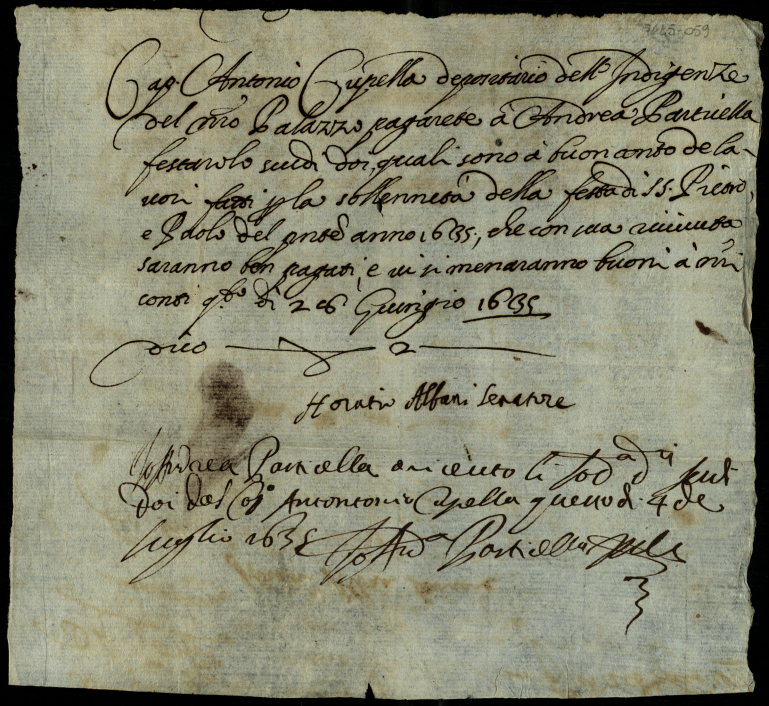 1635-059
Cap. Antonio Cupella depositario dell' Indigenze
del nro Palazzo pagarete à Andrea Particella
festarolo scudi doi quali sono à buon conto de la-
vori fatti p la sollennità della festa di SS. Pietro,
e Paolo del pnte anno 1635, che con sua riceuuta
saranno ben pagati, e ui si menaranno buoni à nri
conti qto di 26 Giugnio 1635
dico 2
Horatio Albani Senatore
Io Andrea Particella o riceuto li sod
scudi
doi dal Antontonio Cupella questo di 4 de
luglio 1635 Io And^a Particella